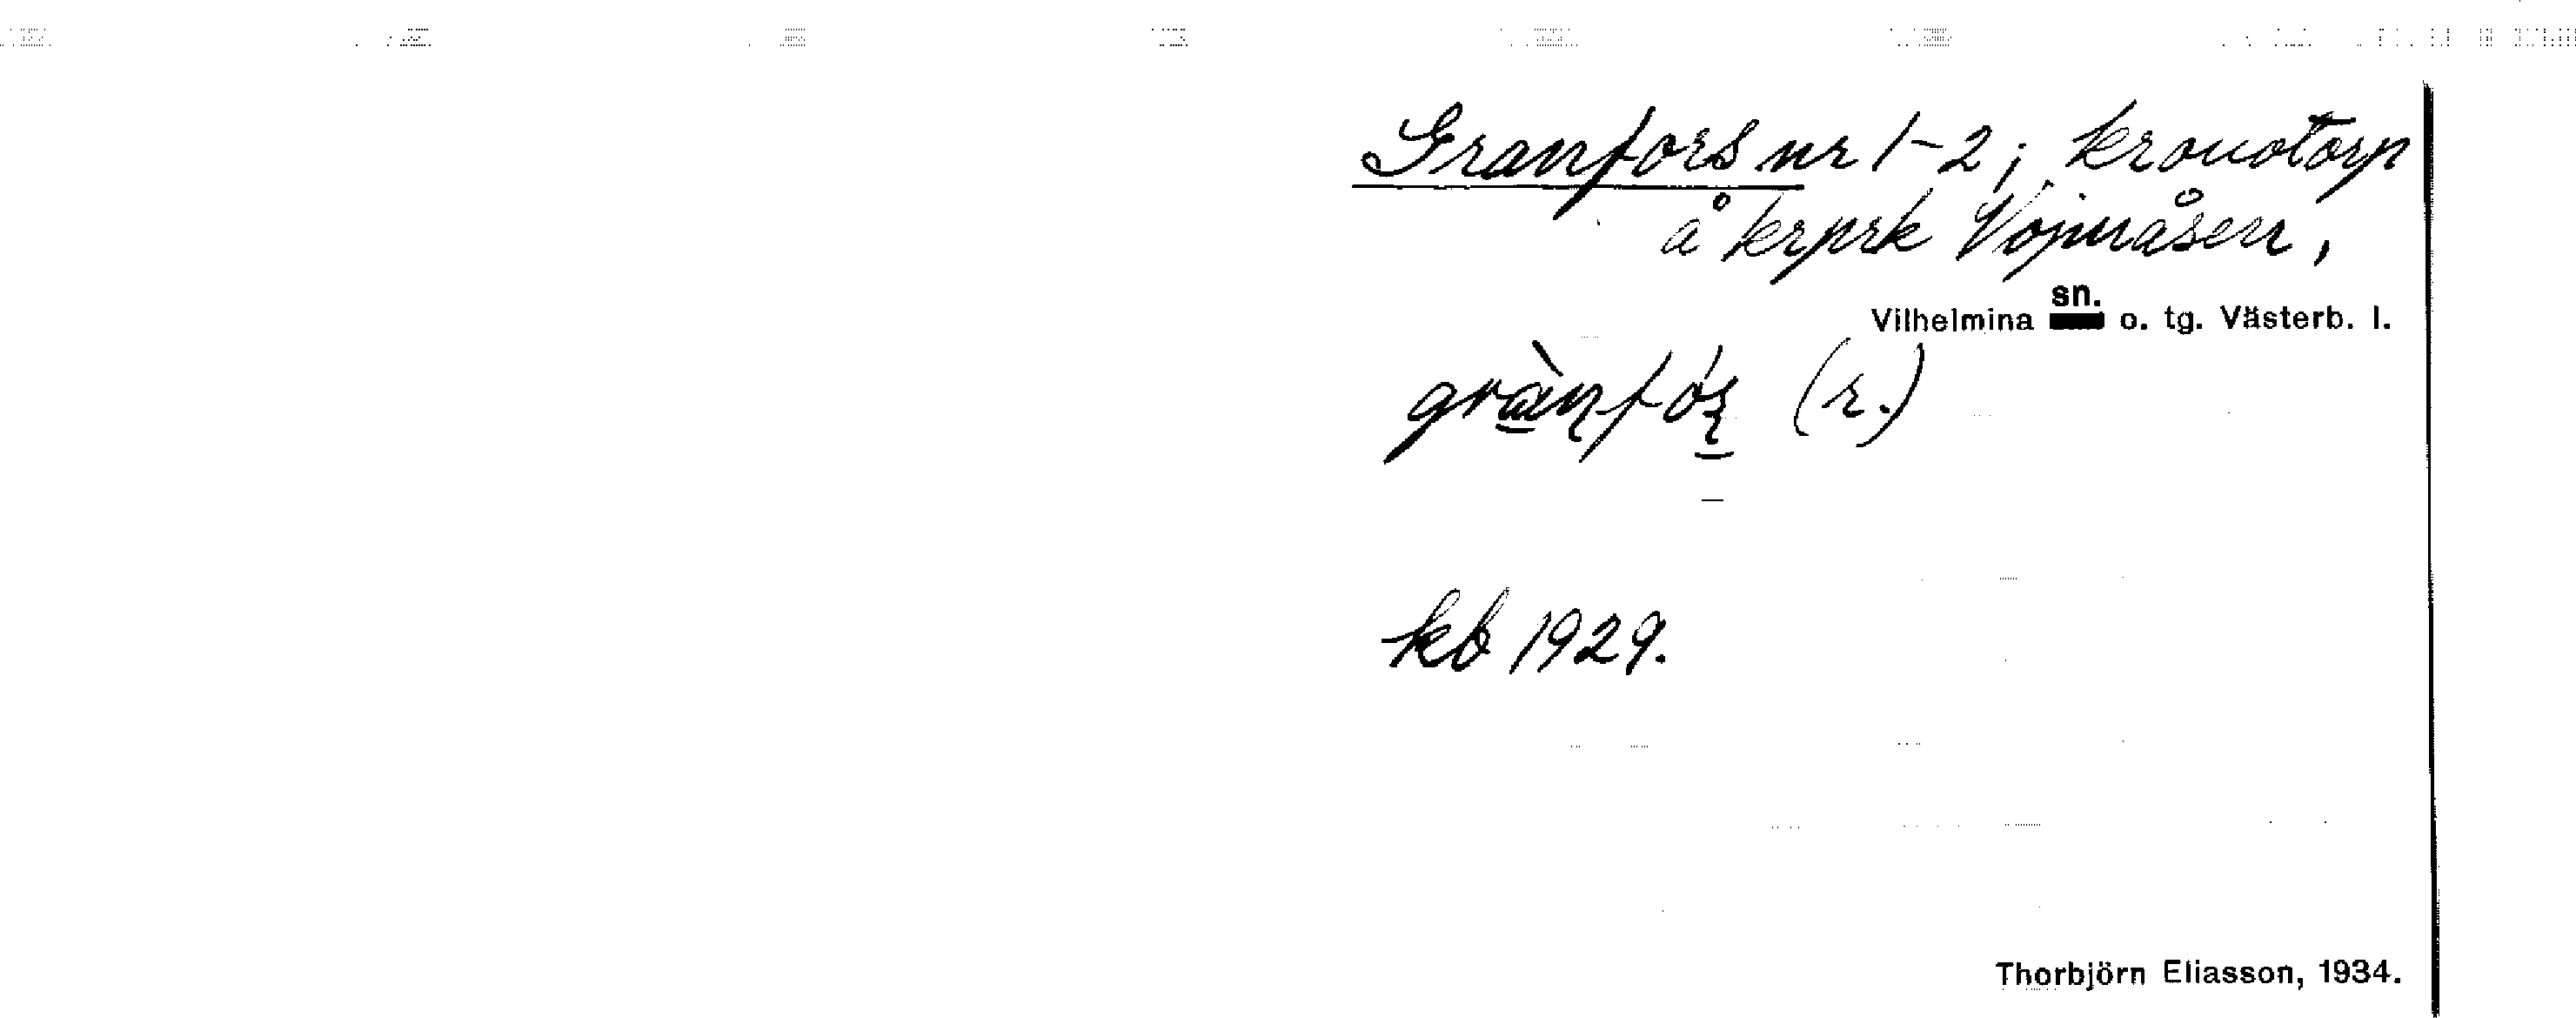 Granfors nr 1-2; kronotorp
å krprk Vojmåsen,
sn.
Vilhelmina o. tg. Västerb. l.
grànfór̨ (r.)
kb 1929.
Thorbjörn Eliasson, 1934.